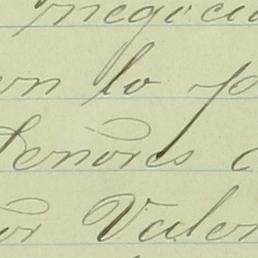 negocia
on lo p
tenores
or Valen